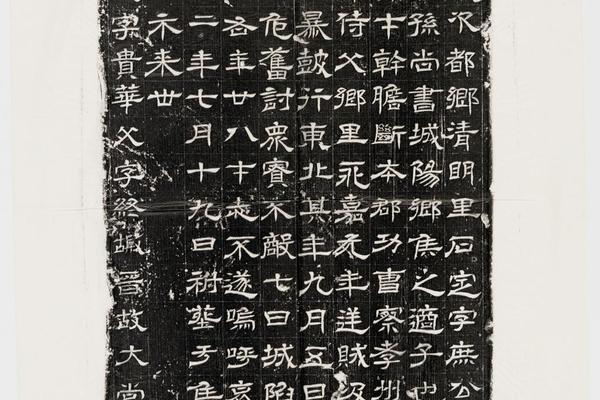 次都鄉清明里石定字庶公
孫尚書城陽鄉侯之適子也
才幹膽斷本郡功曹察孝州
侍父鄉里永嘉元年逆賊汲
暴鼓行東北其年九月五日
危奮討衆寡不敵七日城陷
各年廿八才志不遂嗚呼哀
二年七月十九日祔葬于侯
示来世
字貴華父字終嘏晉故大常